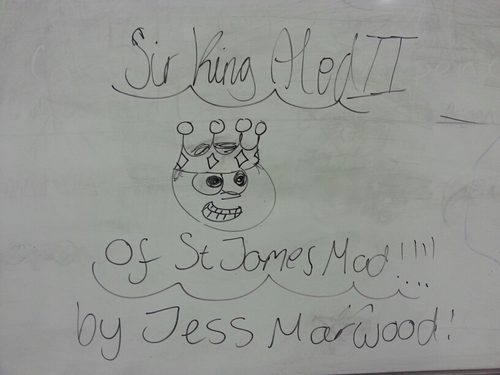 Sir King Aled II
Of St James Mad!!!!
by Jess Marwood!